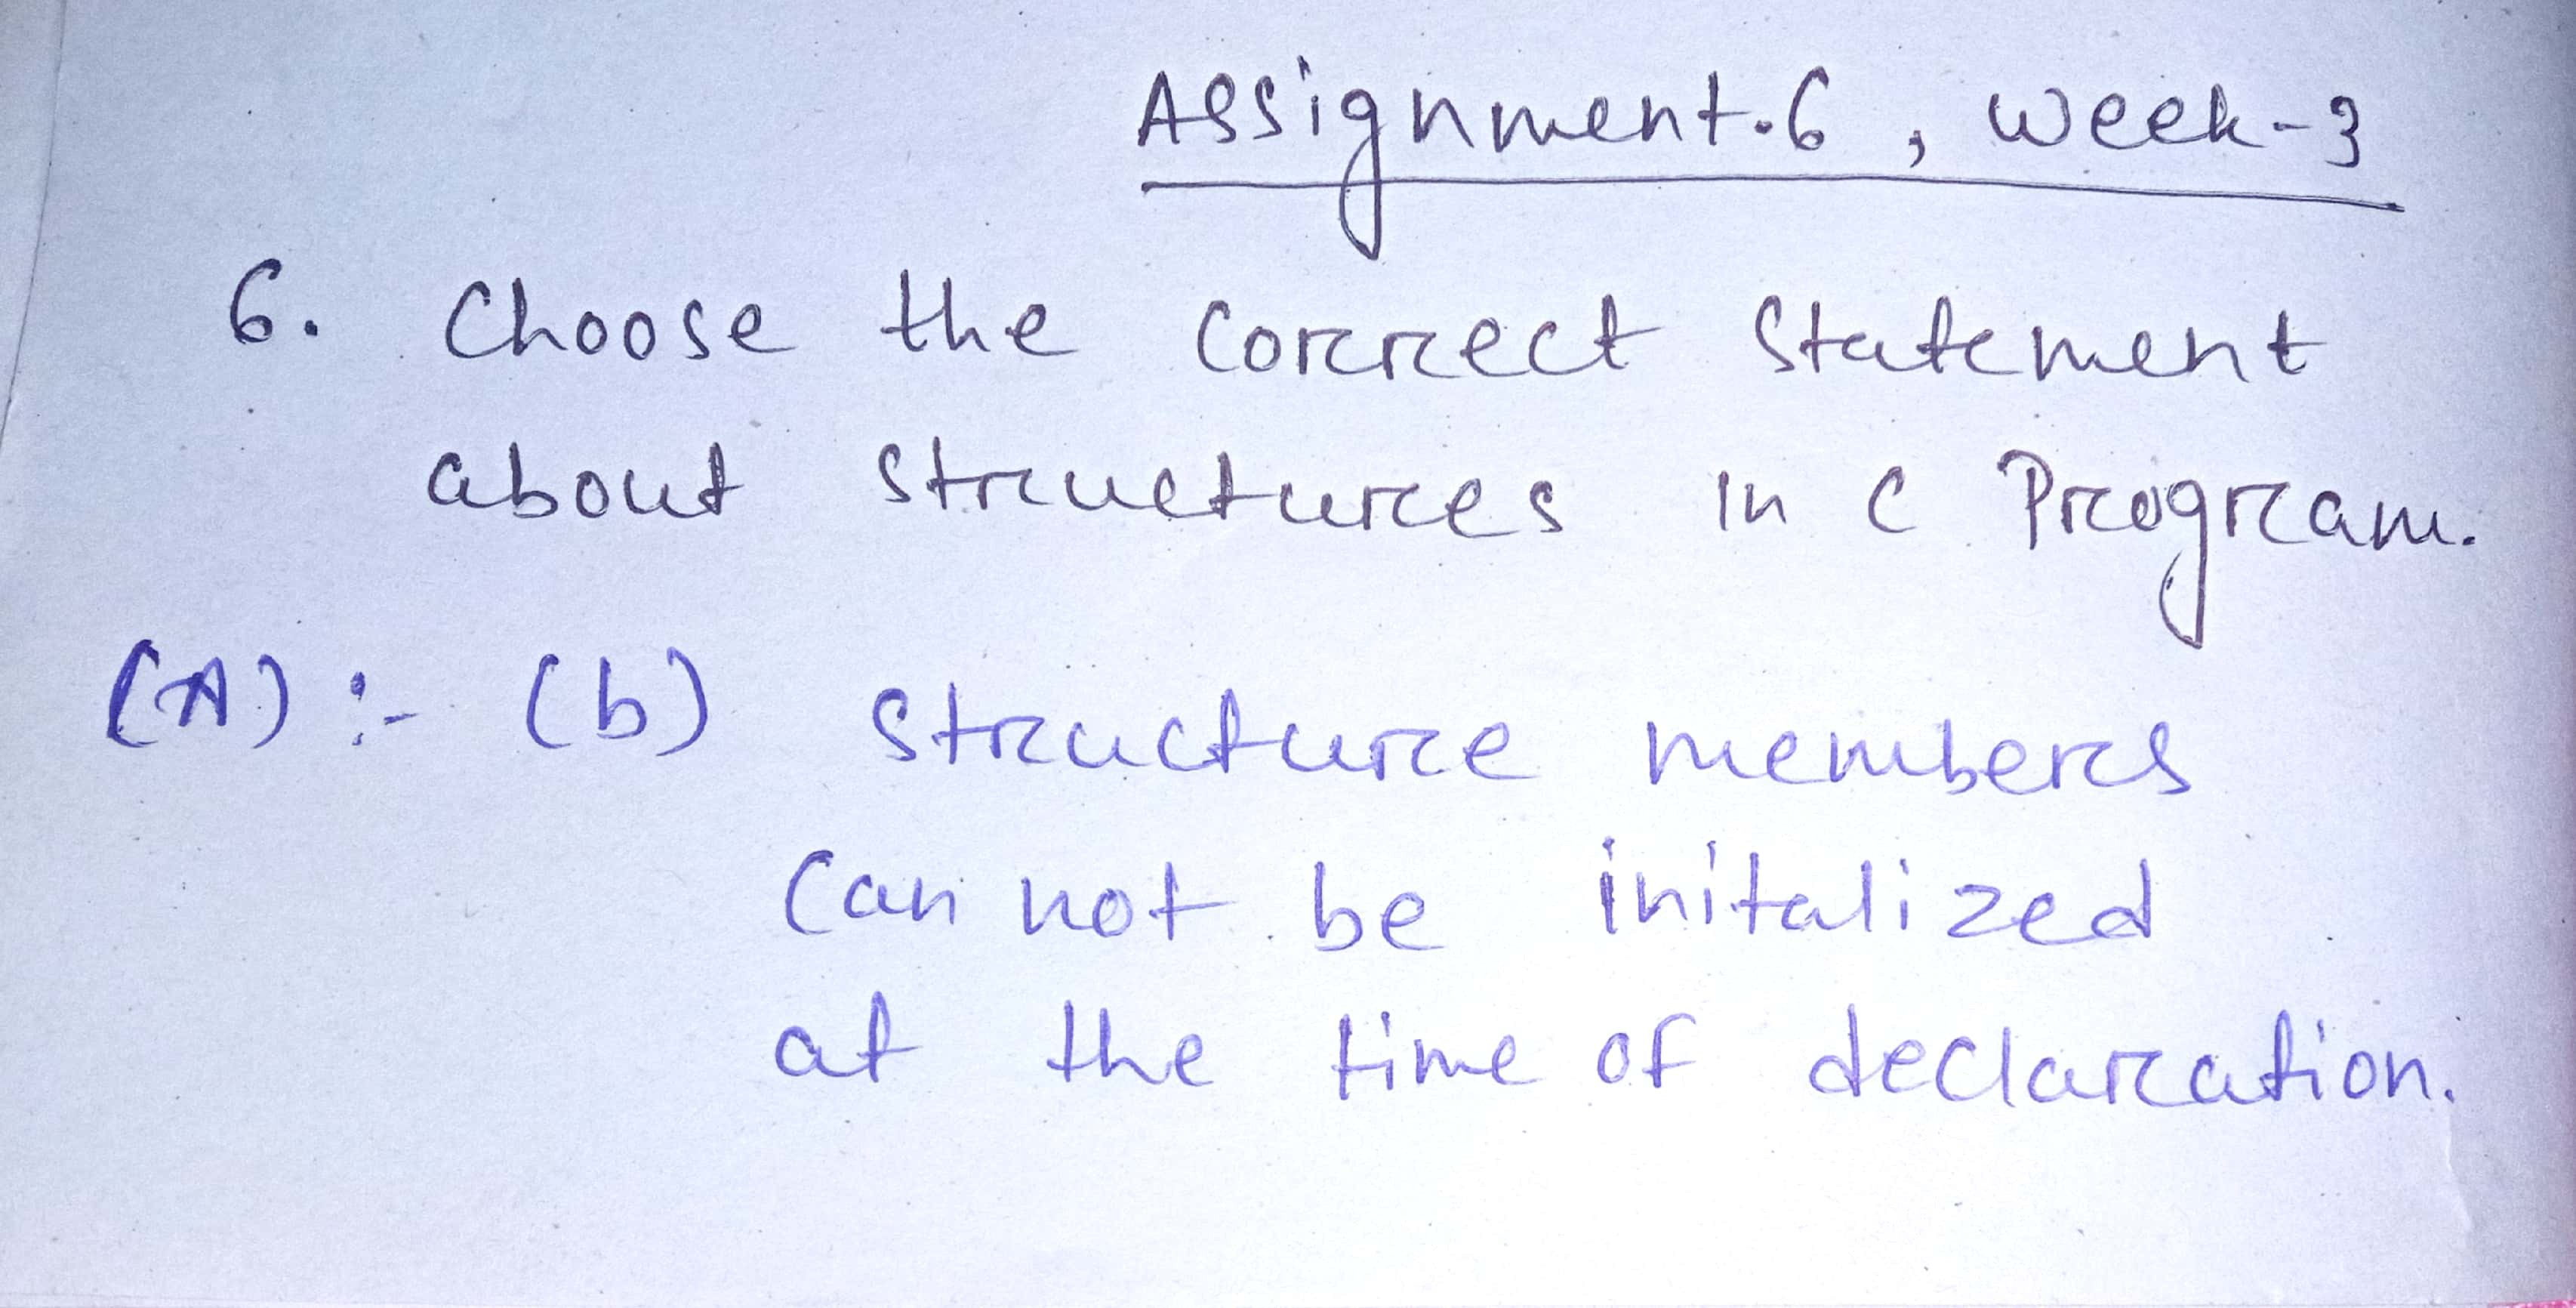 Assignment.6, Week-3
6. Choose the correct statement
about structures in C Program.
(A):- (b) structure members
can not be initalized
at the time of declaration.